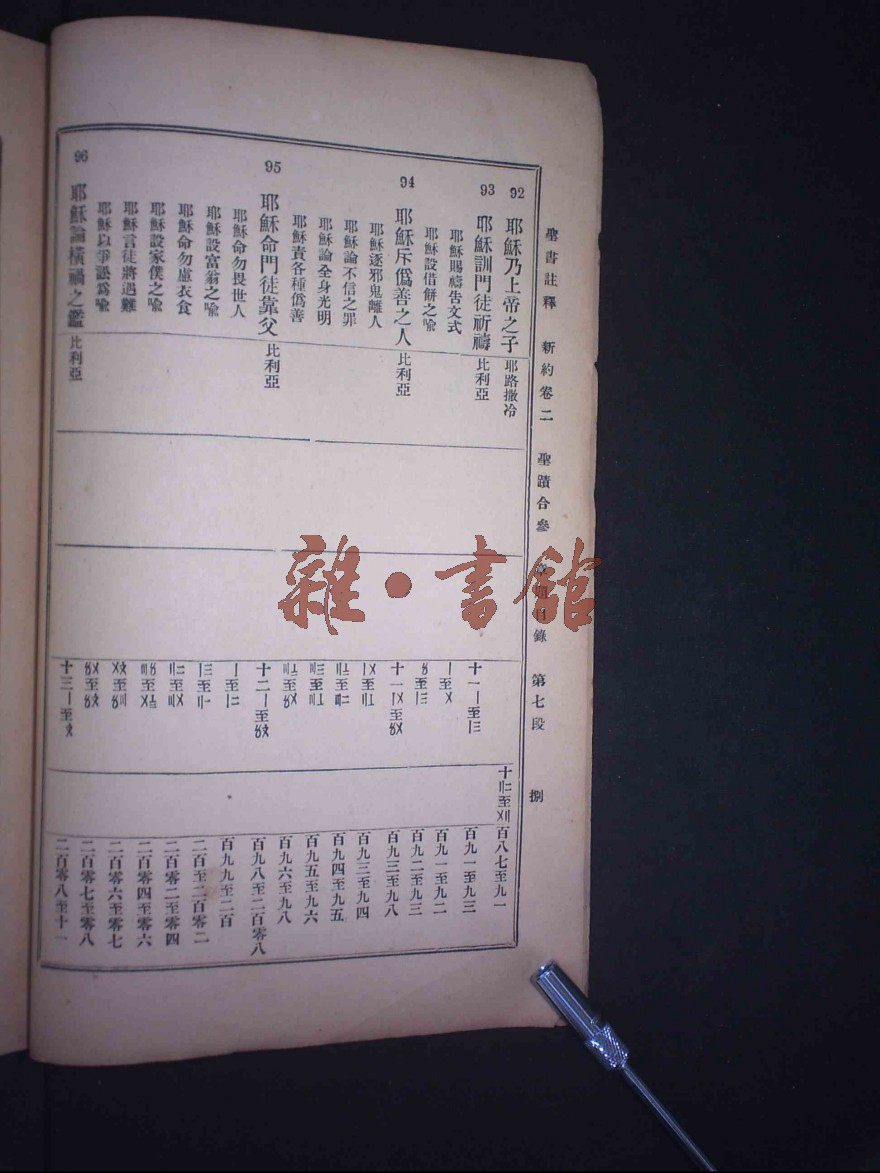 聖書註釋 新約卷二 聖蹟合參 目錄 第七段 捌
92 耶穌乃上帝之子 耶路撒冷 十〢二至〤〢 百八七至九一
93 耶穌訓門徒祈禱 比利亞 十一 〡至〡三 百九一至九三
耶穌賜禱告文式 〡至〤 百九一至九二
耶穌設借餅之喻 〥至〡三 百九二至九三
94 耶穌斥僞善之人 比利亞 十一 〡〤至〥〤 百九三至九八
耶穌逐邪鬼離人 百九三至九四
耶穌論不信之罪 百九四至九五
耶穌論全身光明 百九五至九六
耶穌責各種僞善 百九六至九八
95 耶穌命門徒靠父 比利亞 十二 〡至〥〩 百九八至二百零八
耶穌命勿畏世人 〡至〡二 百九九至二百
耶穌設富翁之喩 〡三至〢一 二百至二百零二
耶穌命勿慮衣食 〢二至〣〤 二百零二至零四
耶穌設家僕之喩 二百零四至零六
耶穌言徒將遇難 〤〩至〥〣 二百零六至零七
耶穌以爭訟爲喩 〥〤至〥〩 二百零七至零八
96 耶穌論橫禍之鑑 比利亞 十三 〡至〩 二百零八至十一
雜·書館